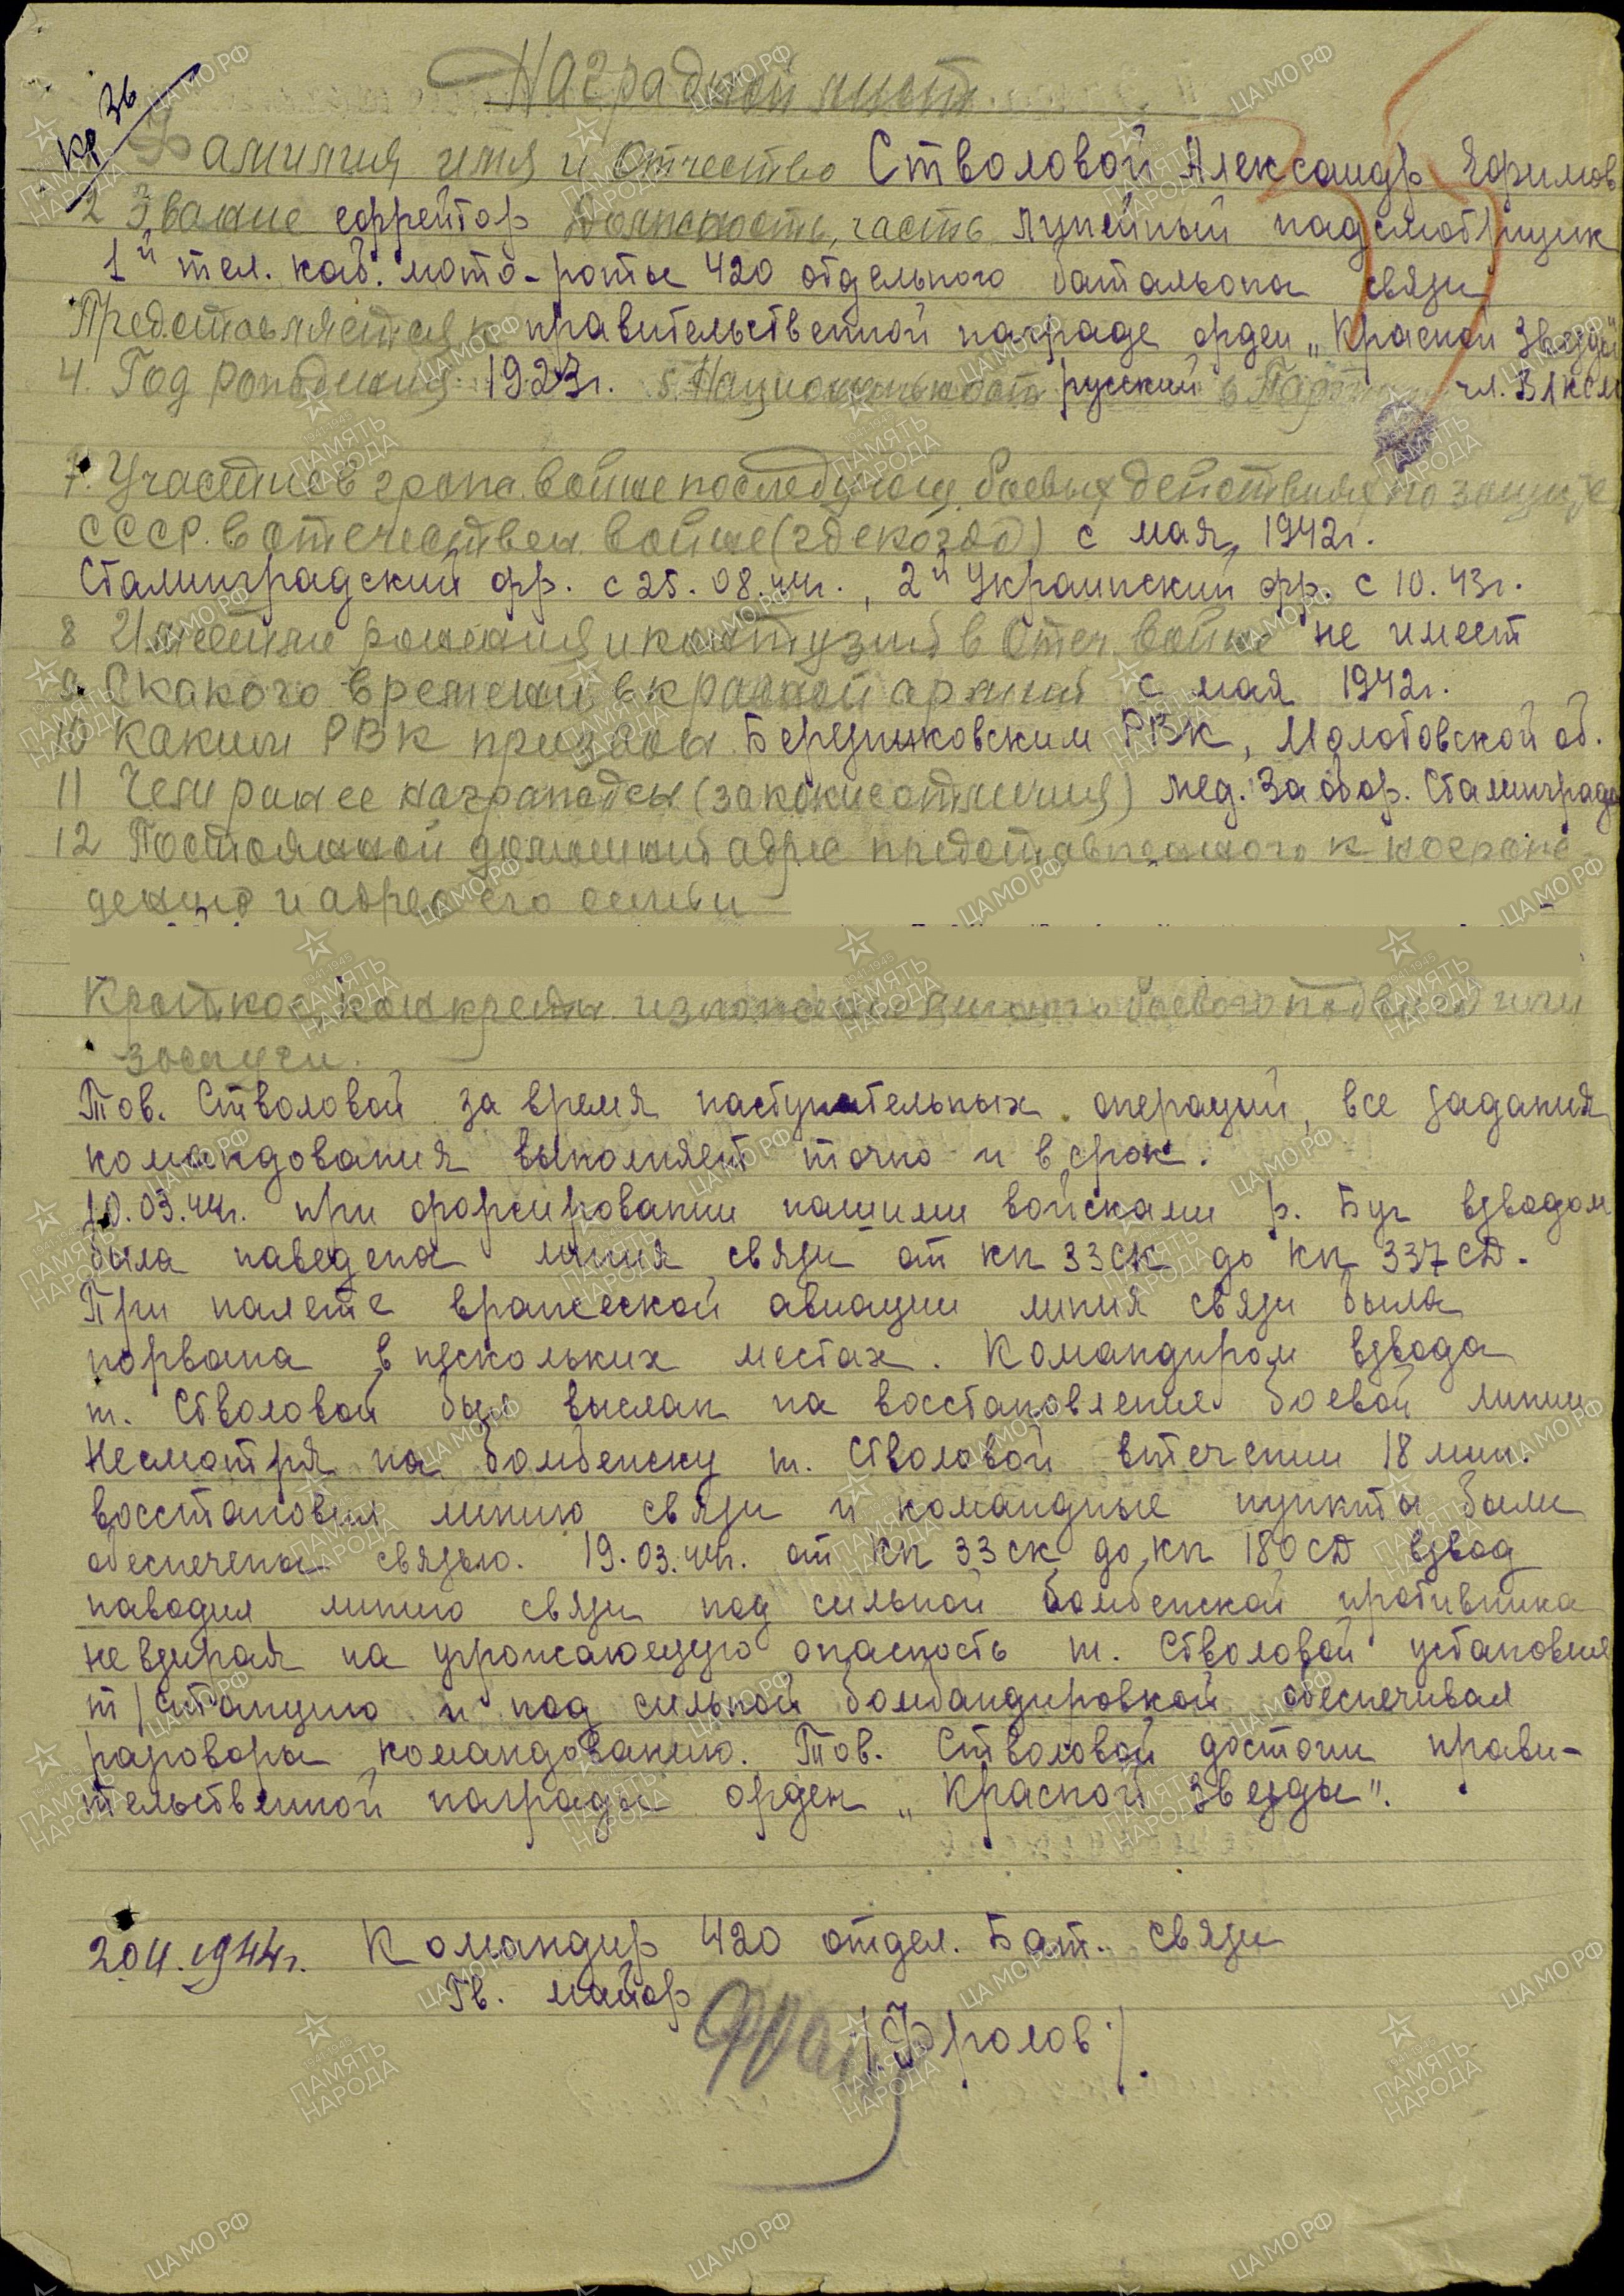 Наградной лист
Кр Зв
Фамилия имя и Отчество Стволовой Александр Ефимов
2 Звание ефрейтор Должность, часть линейный надсмотрщик
1й тел. каб. мото-роты 420 отдельного батальона связи
Представляется к правительственной награде орден „Красной Звезды"
4. Год рождения 1923г. 5. Национальность русский 6 Парт чл. ВЛКСМ
7. Участие в гражд. войне последующ. боевых действиях по защите
СССР. в отечествен. войне (где когда) с мая 1942г.
Сталинградский фр. с 25.08.44г., 2й Украинский фр. с 10.43г.
8 Имеет ли ранения и контузии в Отеч. войне не имеет
9. С какого времени в красной армии с мая 1942г.
10 Каким РВК призван Березниковским РВК, Молотовской об.
11 Чем ранее награжден (за какие отличия) мед. За обор. Сталинграда
12 Постоянной домашний адрес представляемого к награж-
дению и адрес его семьи
Краткое, конкретн. изложение личного боевого подвига или
заслуги.
Тов. Стволовой за время наступательных операций, все задания
командования выполняет точно и в срок.
10.03.44г. при форсировании нашими войсками р. Буг взводом
была наведена линия связи от КП 33СК до КП 337СД.
При налете вражеской авиации линия связи была
порвана в нескольких местах. Командиром взвода
т. Стволовой был выслан на восстановление боевой линии
Несмотря на бомбежку т. Стволовой втечении 18 мин.
восстановил линию связи и командные пункты были
обеспечены связью. 19.03.44г. от КП 33СК до КП 180СД взвод
наводил линию связи под сильной бомбежкой противника
невзирая на угрожающую опасность т. Стволовой установил
т/станцию и под сильной бомбандировкой обеспечивал
разговоры командованию. Тов. Стволовой достоин прави-
тельственной награды орден „Красной Звезды".
20.4.1944г. Командир 420 отдел. Бат. связи
Гв. майор
/Фролов/.
ПАМЯТЬ НАРОДА
1941-1945
ЦАМО РФ